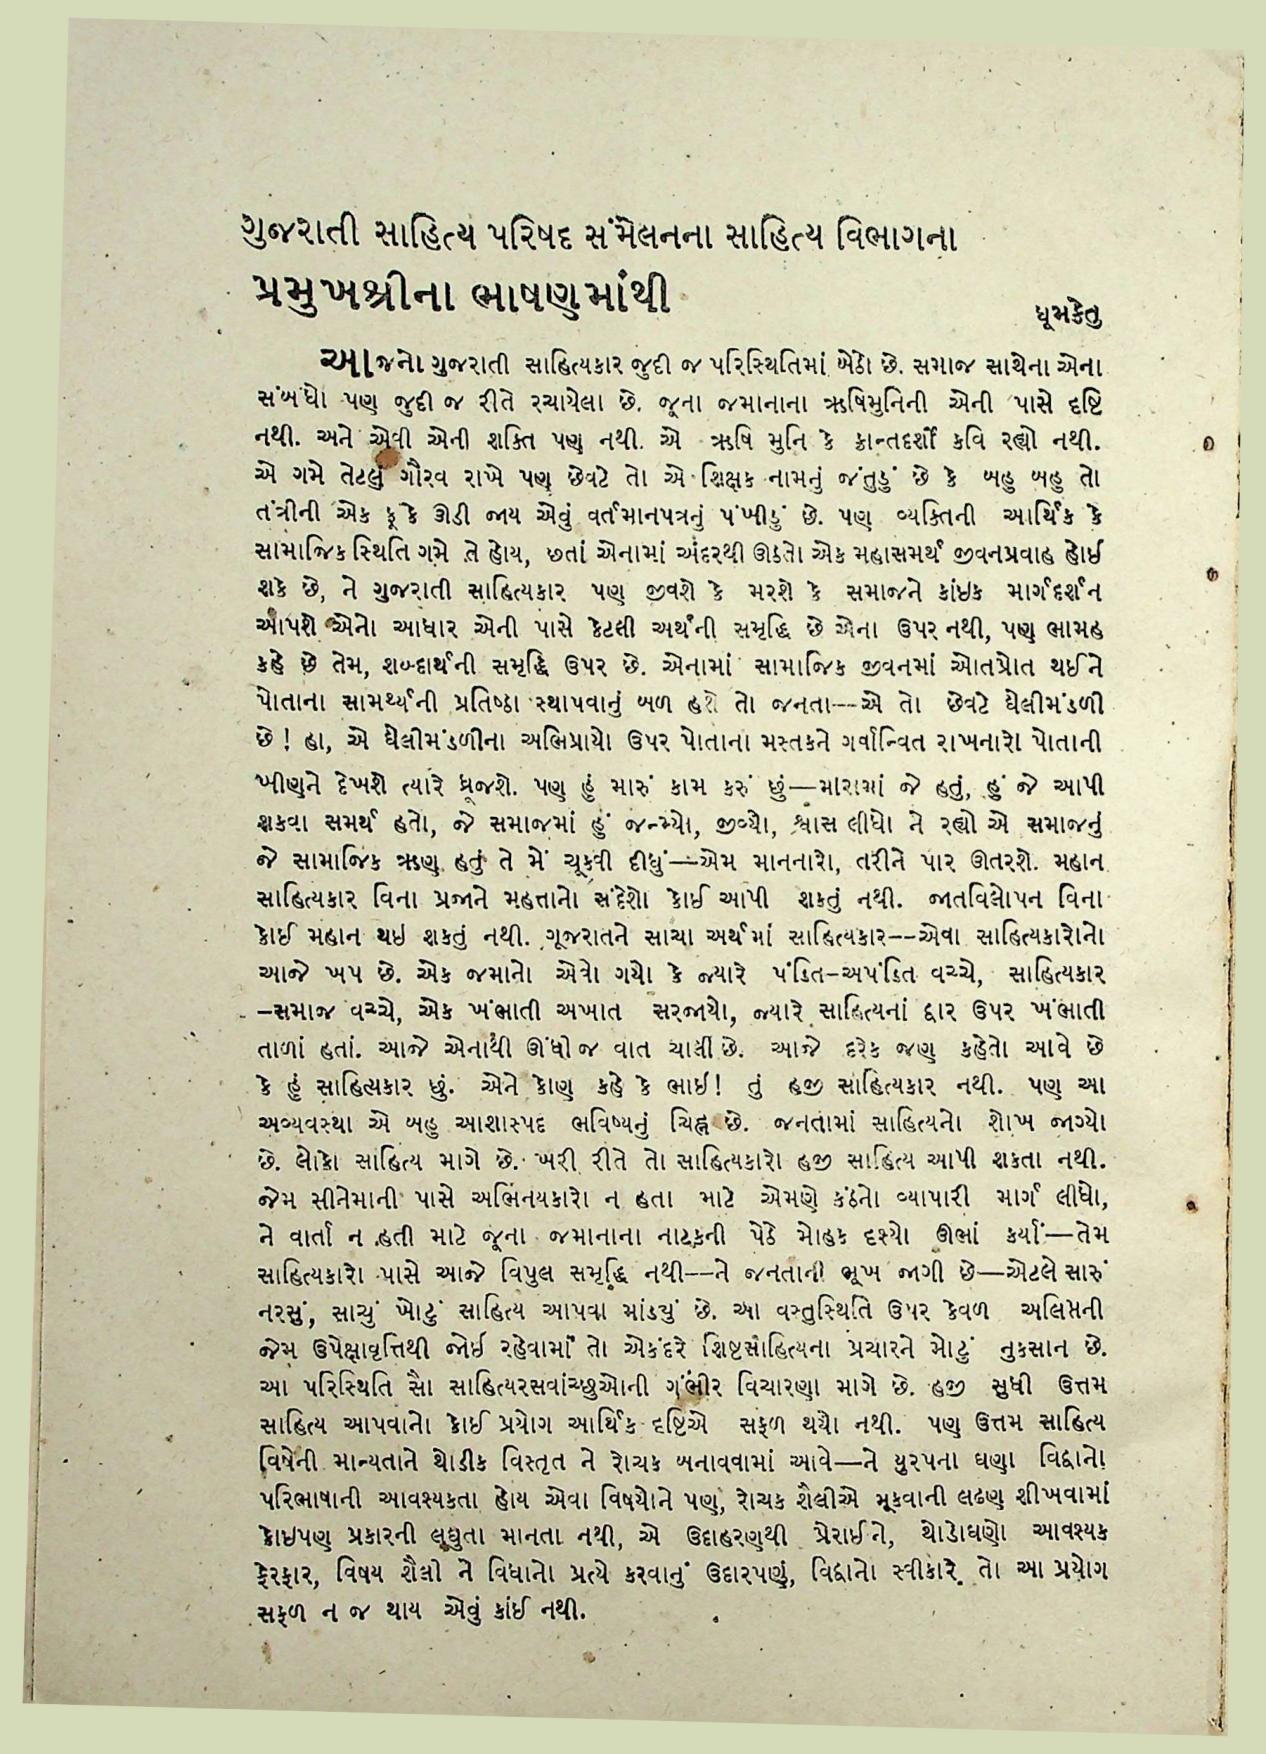 ગુજરાતી સાહિત્ય પરિષદ સંમેલનના સાહિત્ય વિભાગના
પ્રમુખશ્રીના ભાષણમાંથી
ધૂમકેતુ
આજનો ગુજરાતી સાહિત્યકાર જુદી જ પરિસ્થિતિમાં બેઠો છે. સમાજ સાથેના એના
સંબંધો પણ જુદી જ રીતે રચાયેલા છે. જૂના જમાનાના ઋષિમુનિની એની પાસે દૃષ્ટિ
નથી. અને એવી એની શક્તિ પણ નથી. એ ઋષિ મુનિ કે ક્રાન્તદર્શી કવિ રહ્યો નથી.
એ ગમે તેટલું ગૌરવ રાખે પણ છેવટે તો એ શિક્ષક નામનું જંતુડું છે કે બહુ બહુ તો
તંત્રીની એક ફૂંકે ઊડી જાય એવું વર્તમાનપત્રનું પંખીડું છે. પણ વ્યક્તિની આર્થિક કે
સામાજિક સ્થિતિ ગમે તે હોય, છતાં એનામાં અંદરથી ઊઠતો એક મહાસમર્થ જીવનપ્રવાહ હોઈ
શકે છે, ને ગુજરાતી સાહિત્યકાર પણ જીવશે કે મરશે કે સમાજને કાંઇક માર્ગદર્શન
આપશે એનો આધાર એની પાસે કેટલી અર્થની સમૃદ્ધિ છે એના ઉપર નથી, પણ ભામહ
કહે છે તેમ, શબ્દાર્થની સમૃદ્ધિ ઉપર છે. એનામાં સામાજિક જીવનમાં ઓતપ્રોત થઈને
પોતાના સામર્થ્યની પ્રતિષ્ઠા સ્થાપવાનું બળ હશે તો જનતા--એ તો છેવટે ઘેલીમંડળી
છે! હા, એ ઘેલીમંડળીના અભિપ્રાયો ઉપર પોતાના મસ્તકને ગર્વાન્વિત રાખનારો પોતાની
ખીણને દેખશે ત્યારે ધ્રૂજશે. પણ હું મારું કામ કરું છું—મારામાં જે હતું, હું જે આપી
શકવા સમર્થ હતો, જે સમાજમાં હું જન્મ્યો, જીવ્યો, શ્વાસ લીધો ને રહ્યો એ સમાજનું
જે સામાજિક ઋણ હતું તે મેં ચૂકવી દીધું—એમ માનનારો, તરીને પાર ઊતરશે. મહાન
સાહિત્યકાર વિના પ્રજાને મહત્તાનો સંદેશો કોઈ આપી શકતું નથી. જાતવિલોપન વિના
કોઈ મહાન થઇ શકતું નથી. ગૂજરાતને સાચા અર્થમાં સાહિત્યકાર--એવા સાહિત્યકારોનો
આજે ખપ છે. એક જમાનો એવો ગયો કે જ્યારે પંડિત-અપંડિત વચ્ચે, સાહિત્યકાર
-સમાજ વચ્ચે, એક ખંભાતી અખાત સરજાયો, જ્યારે સાહિત્યનાં દ્વાર ઉપર ખંભાતી
તાળાં હતાં. આજે એનાથી ઊંધી જ વાત ચાલી છે. આજે દરેક જણ કહેતો આવે છે
કે હું સાહિત્યકાર છું. એને કોણ કહે કે ભાઇ! તું હજી સાહિત્યકાર નથી. પણ આ
અવ્યવસ્થા એ બહુ આશાસ્પદ ભવિષ્યનું ચિહ્ન છે. જનતામાં સાહિત્યનો શોખ જાગ્યો
છે. લોકો સાહિત્ય માગે છે. ખરી રીતે તો સાહિત્યકારો હજી સાહિત્ય આપી શકતા નથી.
જેમ સીનેમાની પાસે અભિનયકારો ન હતા માટે એમણે કંઠનો વ્યાપારી માર્ગ લીધો,
ને વાર્તા ન હતી માટે જૂના જમાનાના નાટકની પેઠે મોહક દૃશ્યો ઊભાં કર્યાં—તેમ
સાહિત્યકારો પાસે આજે વિપુલ સમૃદ્ધિ નથી--ને જનતાની ભૂખ જાગી છે—એટલે સારું
નરસું, સાચું ખોટું સાહિત્ય આપવા માંડયું છે. આ વસ્તુસ્થિતિ ઉપર કેવળ અલિપ્તની
જેમ ઉપેક્ષાવૃત્તિથી જોઇ રહેવામાં તો એકંદરે શિષ્ટસાહિત્યના પ્રચારને મોટું નુકસાન છે.
આ પરિસ્થિતિ સૌ સાહિત્યરસવાંચ્છુઓની ગંભીર વિચારણા માગે છે. હજી સુધી ઉત્તમ
સાહિત્ય આપવાનો કોઈ પ્રયોગ આર્થિક દૃષ્ટિએ સફળ થયો નથી. પણ ઉત્તમ સાહિત્ય
વિષેની માન્યતાને થોડીક વિસ્તૃત ને રોચક બનાવવામાં આવે—ને યુરપના ઘણા વિદ્વાનો
પરિભાષાની આવશ્યકતા હોય એવા વિષયોને પણ, રોચક શૈલીએ મૂકવાની લઢણ શીખવામાં
કોઇપણ પ્રકારની લઘુતા માનતા નથી, એ ઉદાહરણથી પ્રેરાઈને, થોડોઘણો આવશ્યક
ફેરફાર, વિષય શૈલી ને વિધાનો પ્રત્યે કરવાનું ઉદારપણું, વિદ્વાનો સ્વીકારે તો આ પ્રયોગ
સફળ ન જ થાય એવું કાંઈ નથી.